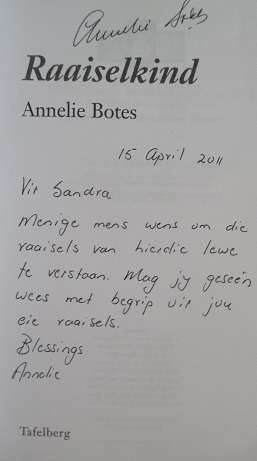 Annelie Botes
Raaiselkind
Annelie Botes
15 April 2011
Vir Sandra
Menige mens wens om die
raaisels van hierdie lewe
te verstaan. Mag jy geseën
wees met begrip vir jou
eie raaisels.
Blessings
Annelie
Tafelberg